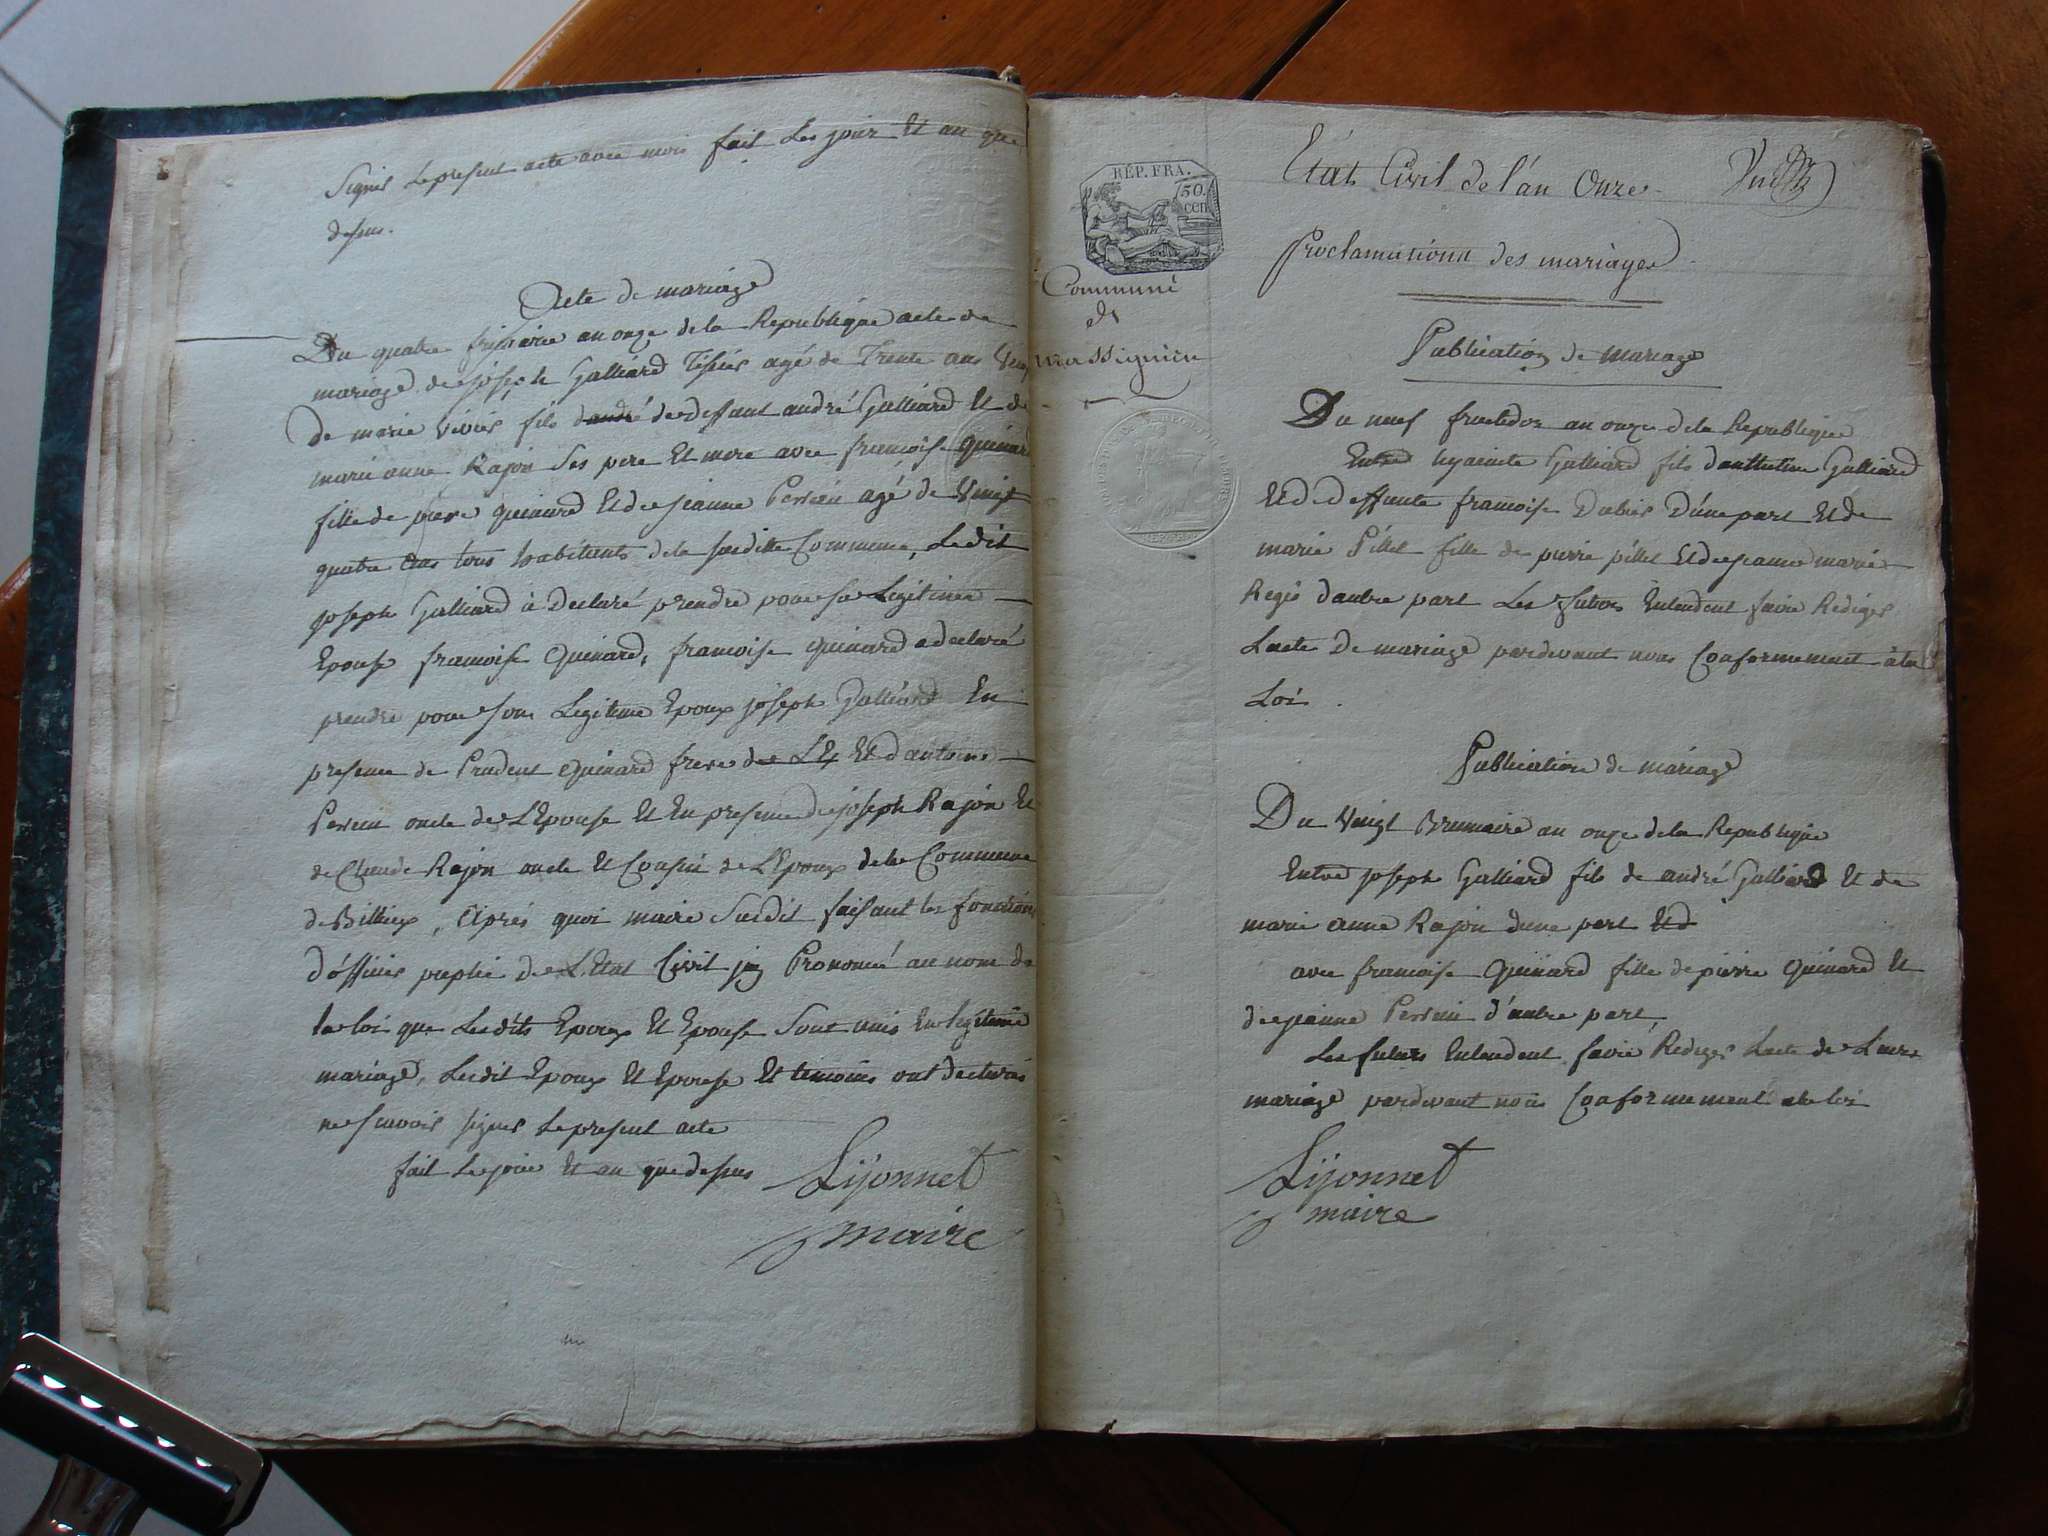 Signés le present acte avec moi fait Les jour Et an que
dessus.
Acte de mariage
Du quatre frimaire an onze de la Republique acte de
mariage de joseph Galliard Tissier agé de Trente ans veuf
de marie vivier fils dandré de deffunt andré Galliard Et de
marie anne Rajon Ses pere Et mere avec francoise quinard
fille de pierre quinard Et de jeanne Perrein agé de Vingt
quatre ans tous habitants de la susditte Commune, Ledit
joseph Galliard à Declaré prendre pour sa Legitime
Epouse francoise Quinard, francoise quinard a declaré
prendre pour son Legitime Epoux joseph Galliard En
presence de Prudent Quinard frere de LEp Et d'antoine
Perrein oncle de L'Epouse Et En presence de joseph Rajon Et
de Claude Rajon oncle Et Cousin de L'Epoux de la Commune
de Billieux, Aprés quoi maire Susdit faisant les fonctions
d'officier public de L'Etat Civil jai Prononcé au nom de
la loi que Lesdits Epoux Et Epouse Sont unis En legitime
mariage, Lesdit Epoux Et Epouse Et temoins ont declarés
ne scavoir signer Le present acte
fait Le jour Et an que dessus Lijonnet
maire
RÉP. FRA.
50.
cen
Commune
de
massignieu
Etat Civil de l'an Onze
Proclamationn des mariages
Publication de mariage
Du neuf fructidor an onze de la Republique
Entre hyacinte Galliard fils d'anthelme Galliard
Et de deffunte francoise Dubis D'une part Et de
marie Pillet fille de pierre pillet Et de jeanne marie
Regis d'autre part Les futurs Entendent faire Rediger
Lacte De mariage pardevant nous Conformement à la
Loi.
Publication de mariage
Du Vingt Brumaire an onze de la Republique
Entre joseph Galliard fils de andré Galliard Et de
marie anne Rajon dune part Et d
avec francoise Quinard fille de pierre Quinard Et
de jeanne Perrein d'autre part,
Les futurs Entendent faire Rediger Lacte de Leurs
mariage pardevant nous Conformement ala loi
Lijonnet
maire